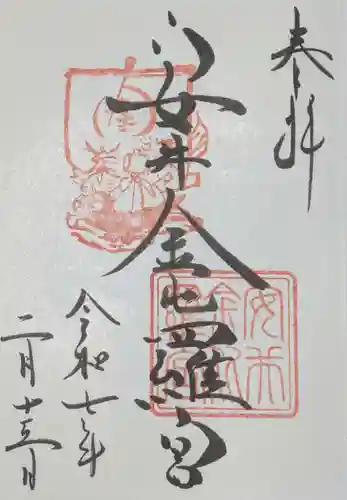 奉拝
安井金毘羅宮
令和七年
二月十三日